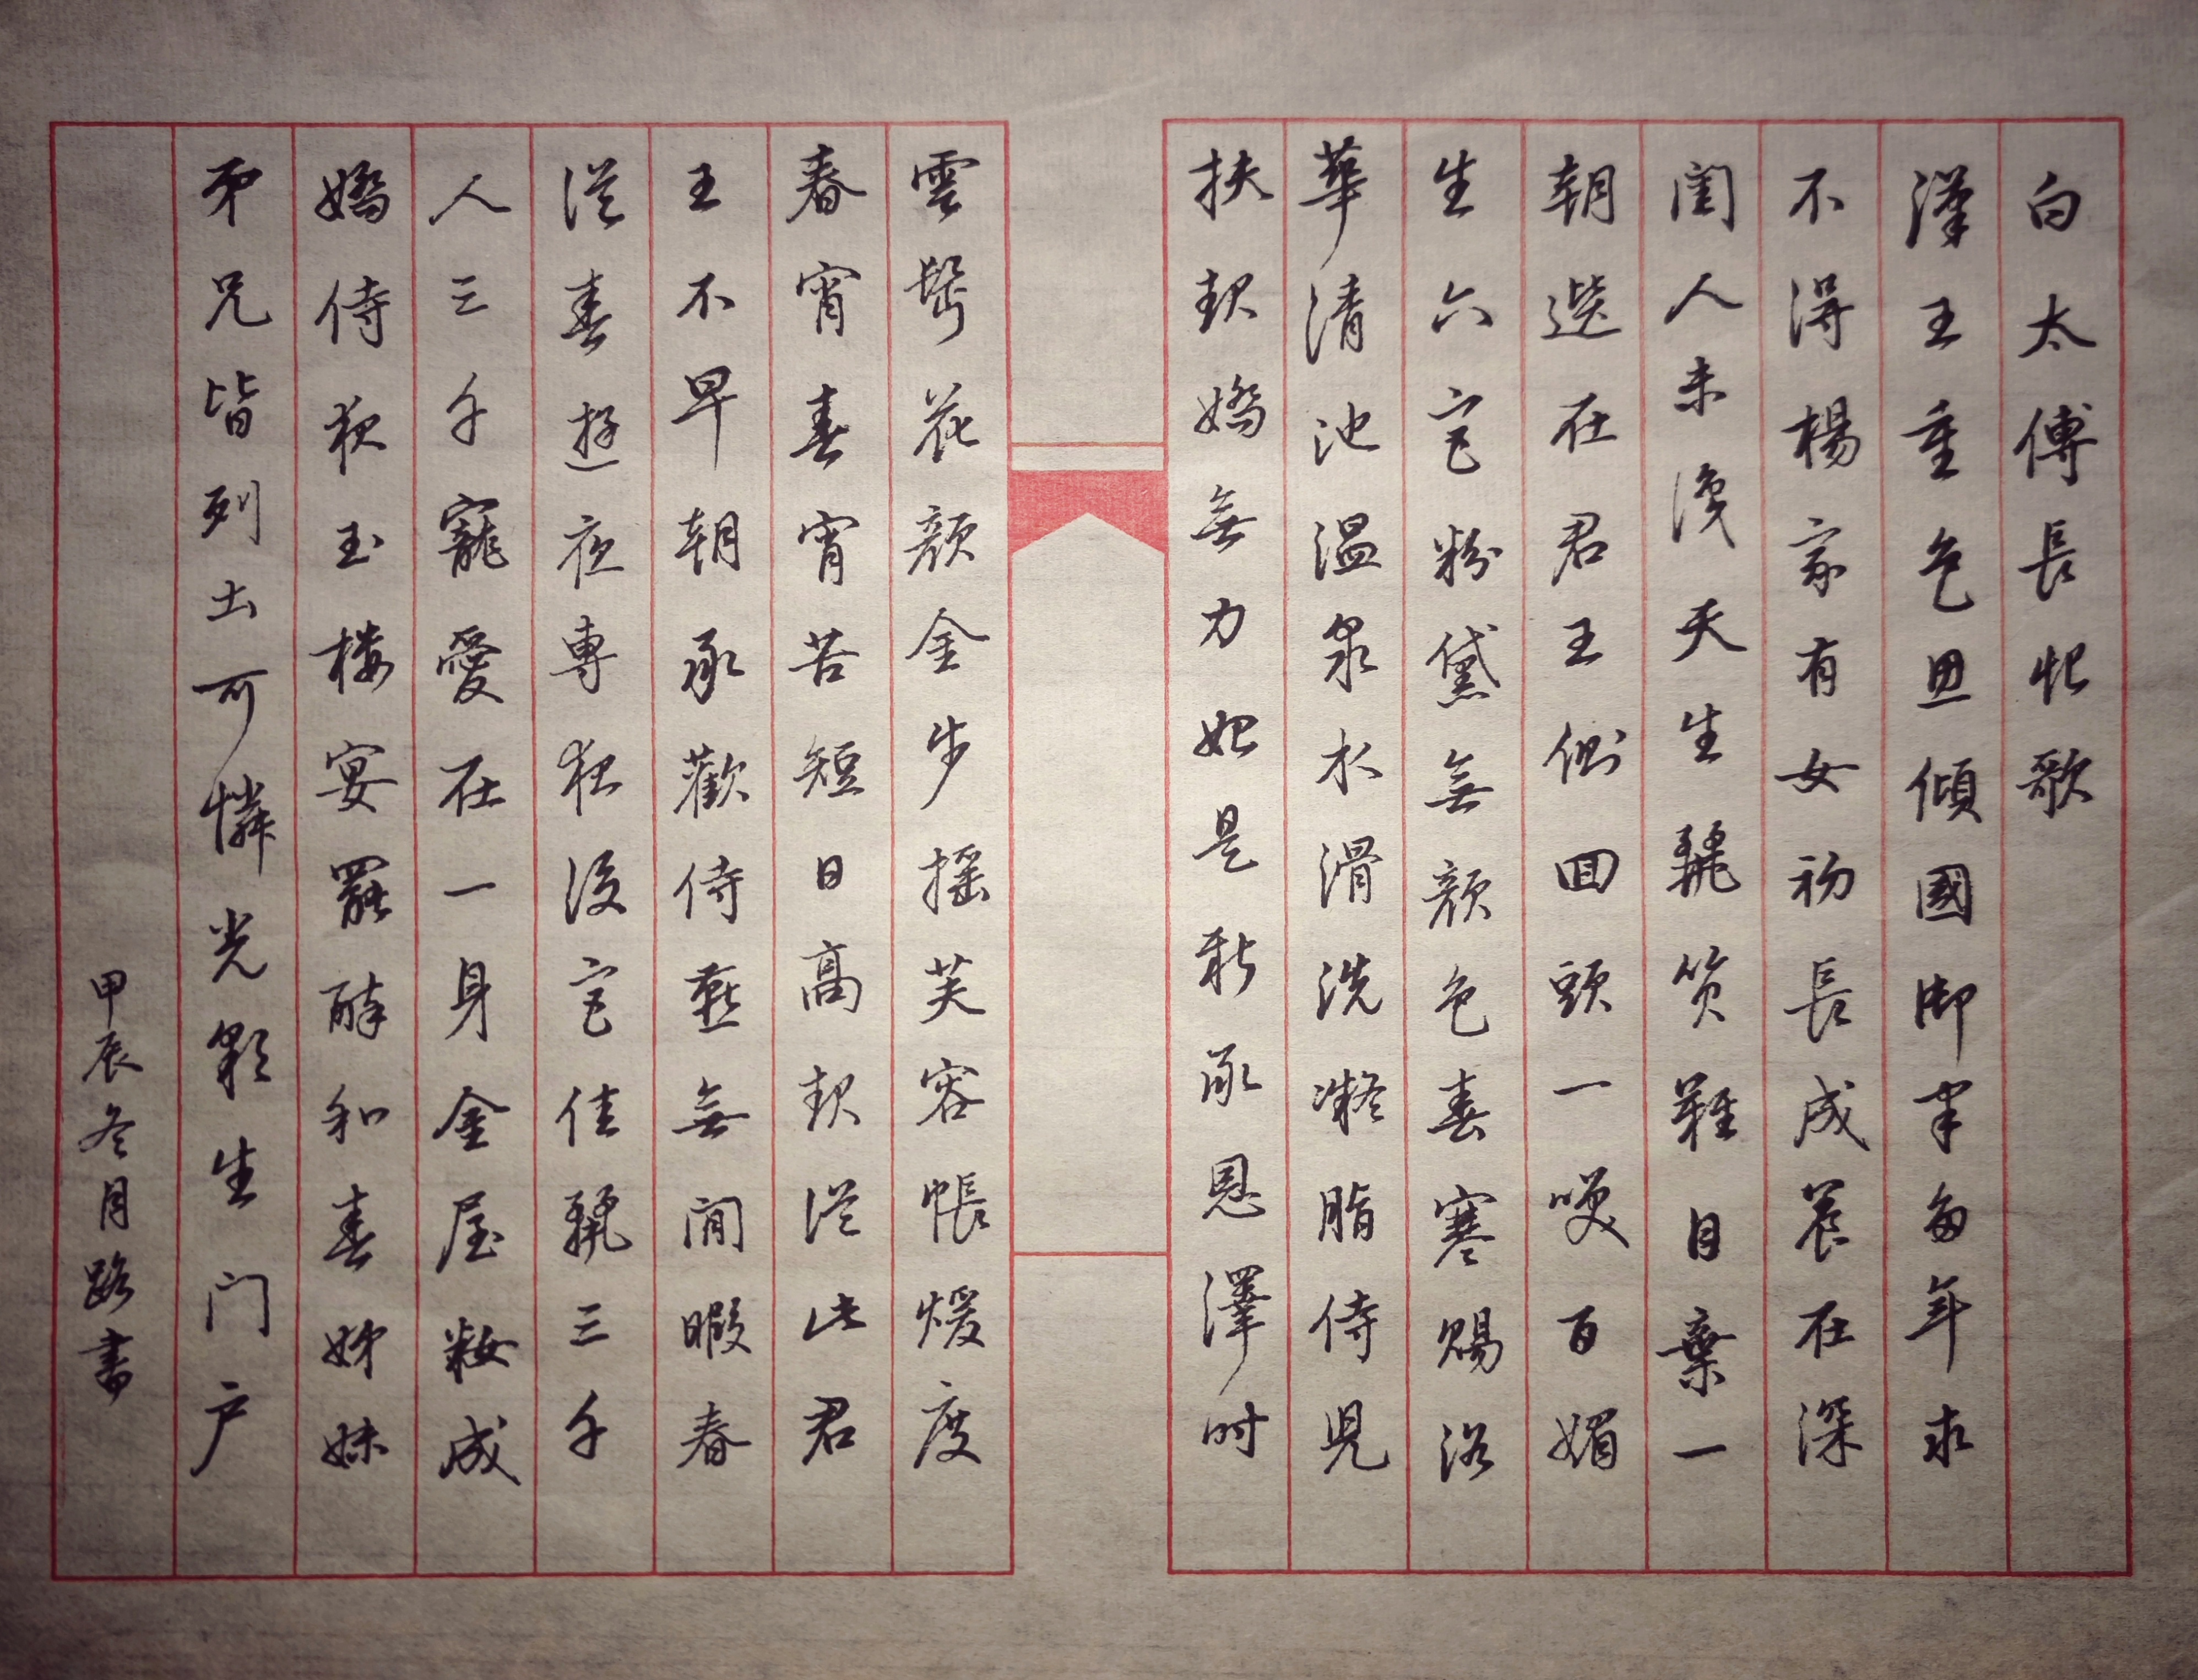 白太傅長恨歌
漢王重色思傾國御宇多年求
不得楊家有女初長成養在深
閨人未識天生麗質難自棄一
朝選在君王側囬頭一咲百媚
生六宮粉黛無顏色春寒賜浴
華清池溫泉水滑洗凝脂侍兒
扶起嬌無力始是新承恩澤时
雲鬢花顏金步搖芙容帳煖度
春宵春宵苦短日高起從此君
王不早朝承歡侍燕無閒暇春
從春遊夜專夜後宮佳麗三千
人三千寵愛在一身金屋粧成
嬌侍夜玉楼宴罷醉和春姊妹
弟兄皆列土可憐光彩生门户
甲辰冬月路書